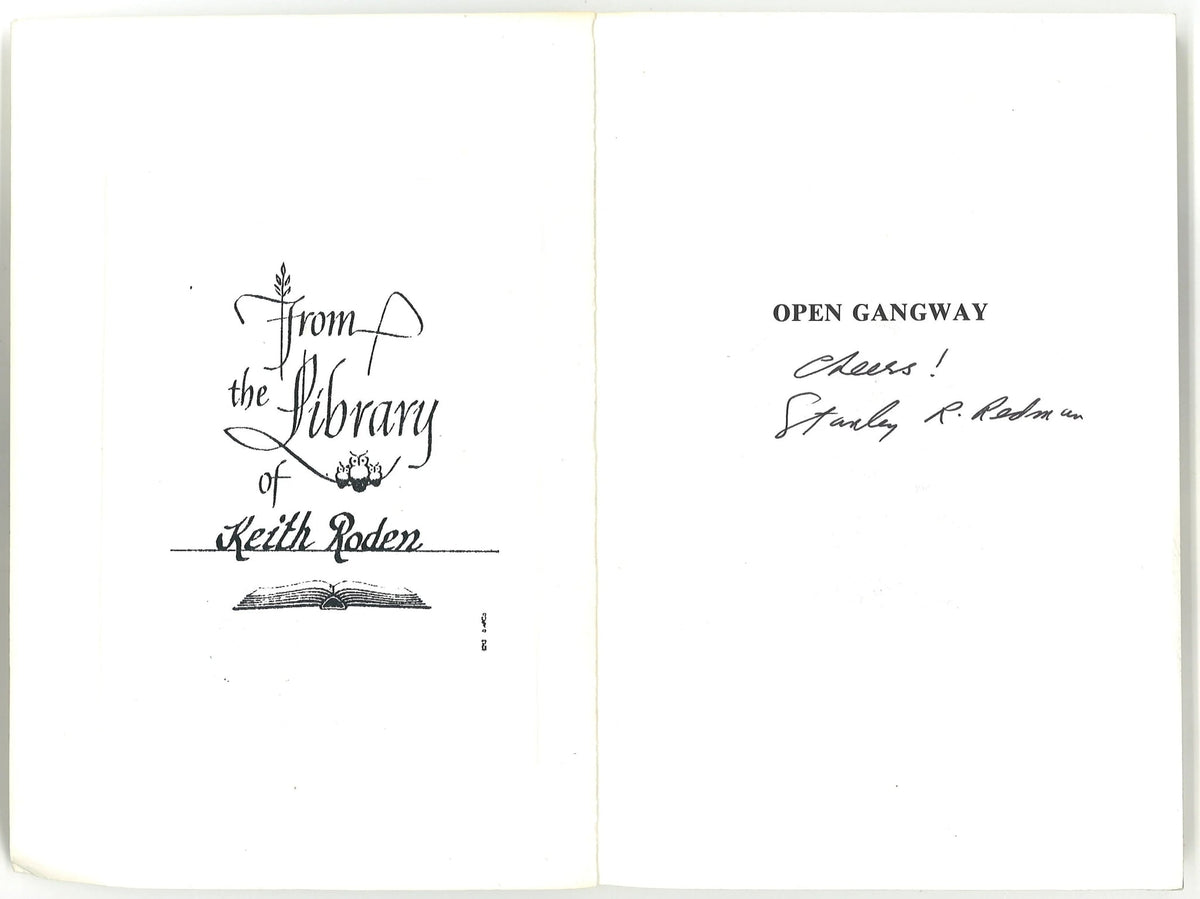 From
the Library
of
Keith Roden
OPEN GANGWAY
Cheers!
Stanley R. Redman